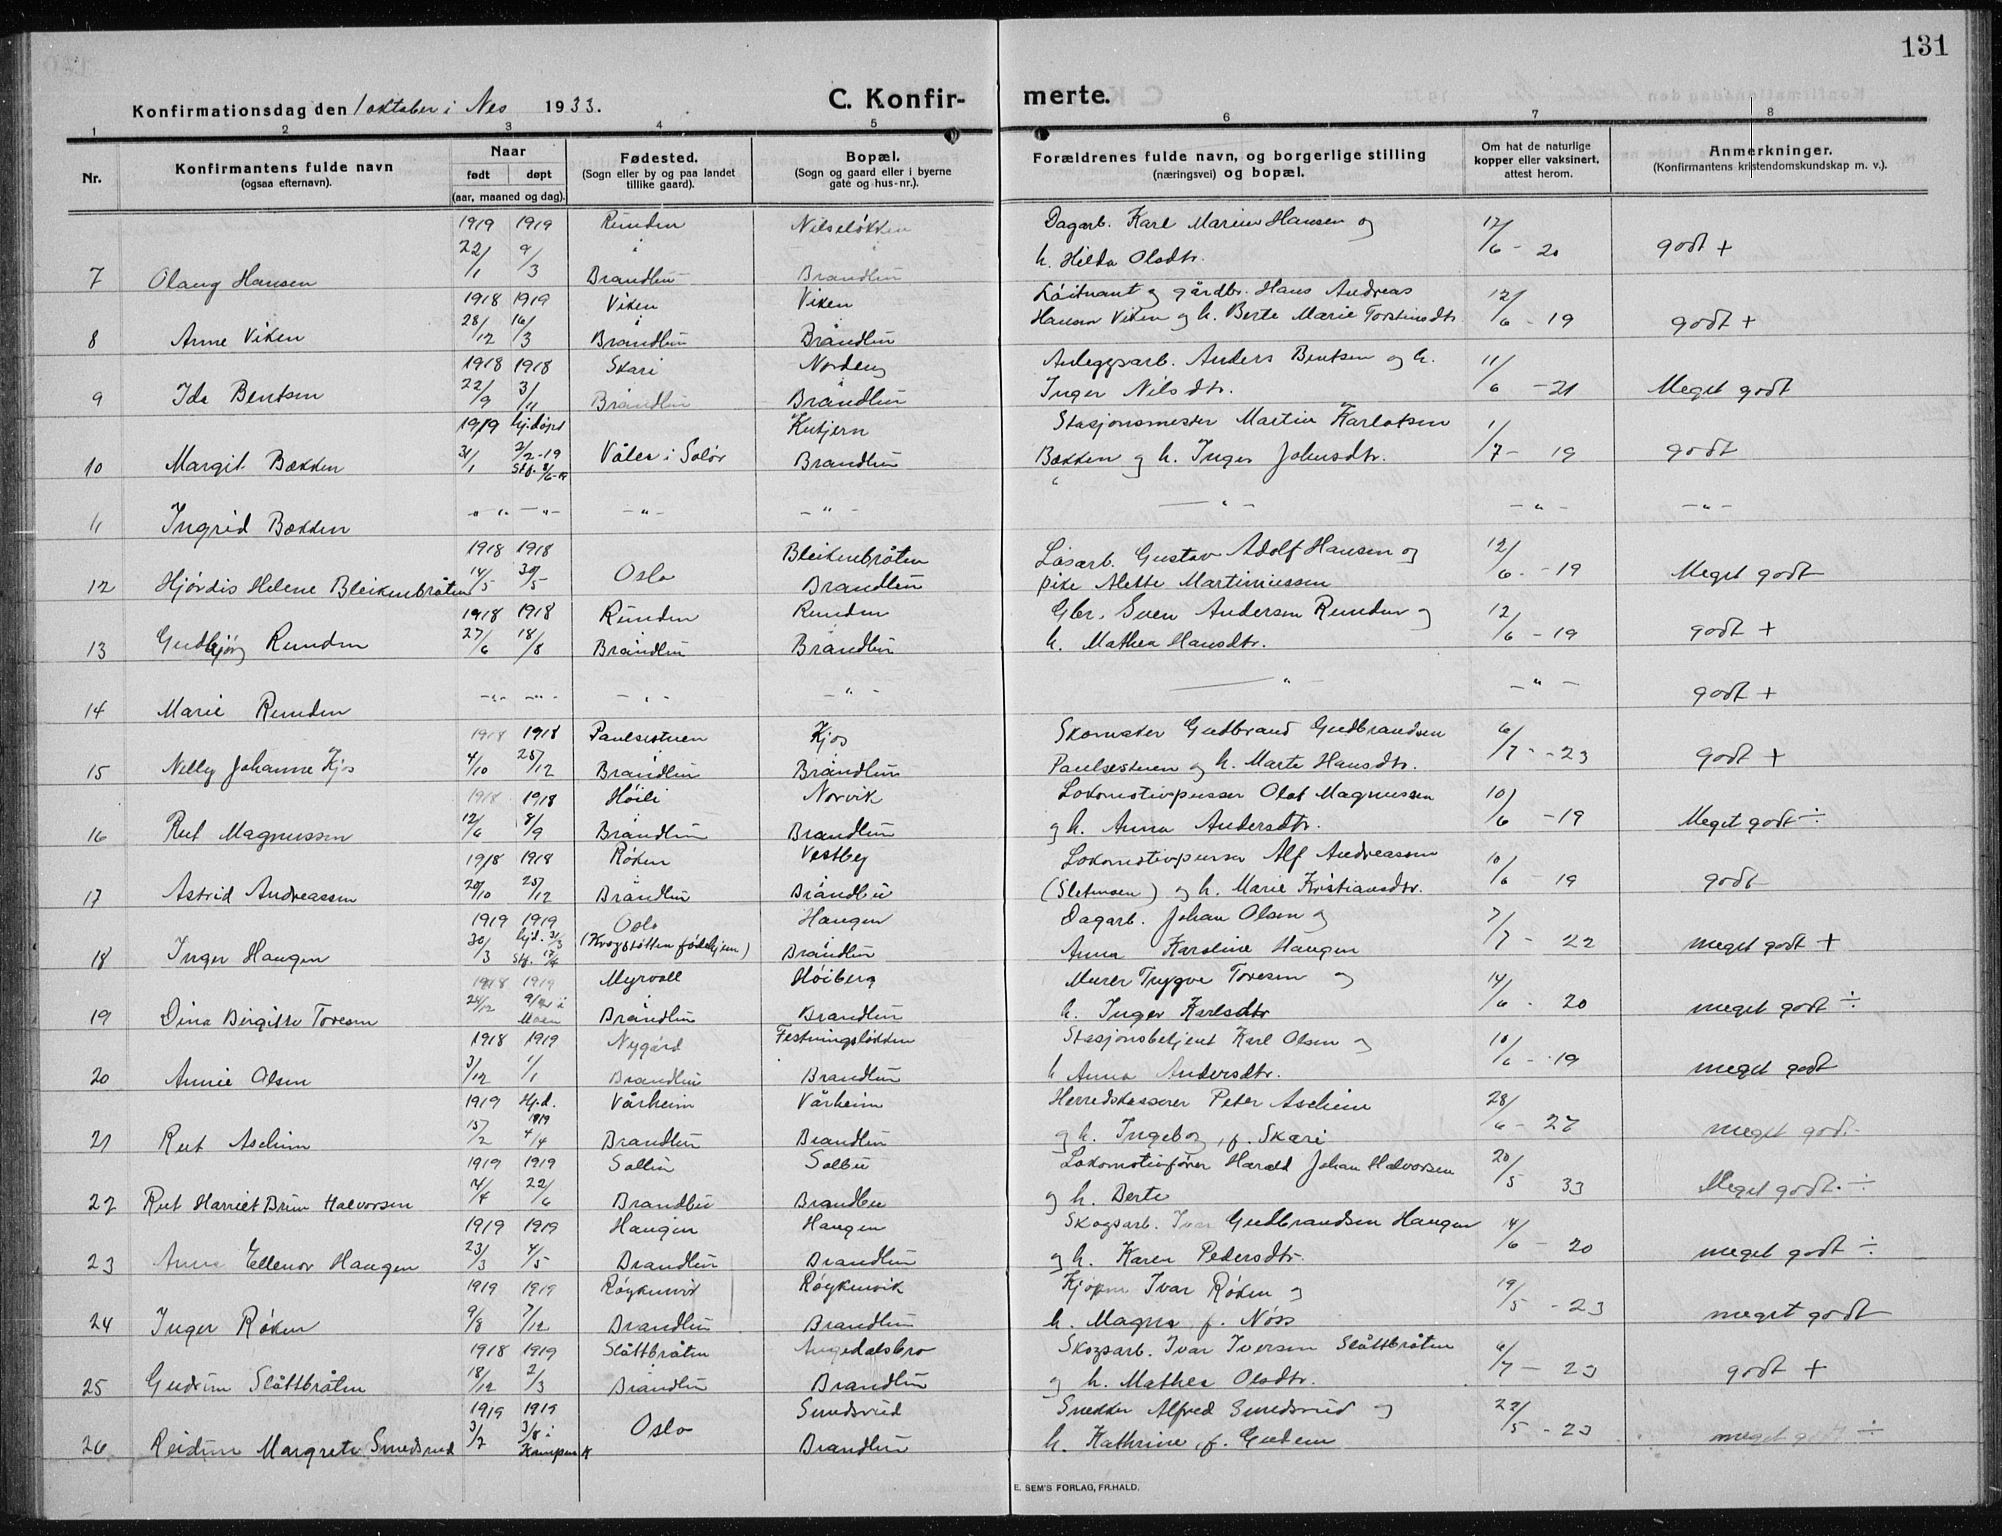 131
Konfirmationsdag den 1 oktober i Nes 1933.
C. Konfirmerte.
1 2 3 4 5 6 7 8
Nr.
Konfirmantens fulde navn
(ogsaa efternavn).
Naar
født døpt
(aar, maaned og dag).
Fødested.
(Sogn eller by og paa landet
tillike gaard).
Bopæl.
(Sogn og gaard eller i byerne
gate og hus-nr.).
Forældrenes fulde navn, og borgerlige stilling
(næringsvei) og bopæl.
Om hat de naturlige
kopper eller vaksinert,
attest herom.
Anmerkninger.
(Konfirmantens kristendomskundskap m. v.).
1919 1919 Runden Nilseløkken Dagarb. Karl Marius Hansen og 12/6 - 20 godt +
7 Olaug Hansen 22/1 9/3 i Brandbu Brandbu h. Hilda Olsdtr.
1918 1919 Viken Viken Løitnant og gårdbr. Hans Andreas 12/6 - 19
8 Anne Viken 28/12 16/3 Brandbu Brandbu Hansen Viken og h. Berte Marie Torstensdtr. godt +
1918 1918 Skari Nordeng Anleggsarb. Anders Bentsen og h. 11/6 - 21
9 Ida Bentsen 22/9 3/11 Brandbu Brandbu Inger Nilsdtr. Meget godt
1919 hj.døpt Kutjern Stasjonsmester Martin Karlotsen 1/7 - 19
10 Margit Bækken 31/1 2/2-19 Stf. 8/6-19 Våler i Solør Brandbu Bækken og h. Inger Johnsdtr. godt
11 Ingrid Bækken - " - - " - - " - - " - - " - - " - - " -
1918 1918 Bleikenbråten Løsarb. Gustav Adolf Hansen og 12/6 - 19
12 Hjørdis Helene Bleikenbråten 14/5 30/5 Oslo Brandbu pike Alette Martiniussen Meget godt
1918 1918 Runden Runden Gbr. Sven Andersen Runden og 12/6 - 19
13 Gudbjørg Runden 27/6 18/8 Brandbu Brandbu h. Mathea Hansdtr. godt +
14 Marie Runden - " - - " - - " - - " - " - " - godt +
1918 1918 Paulsestuen Kjos Skomaker Gudbrand Gudbrandsen 6/7 - 23
15 Nelly Johanne Kjos 4/10 25/12 Brandbu Brandbu Paulsestuen og h. Marte Hansdtr. godt +
1918 1918 Høili Norvik Lokomotivpusser Olaf Magnussen 10/6 - 19
16 Rut Magnussen 12/6 8/9 Brandbu Brandbu og h. Anna Andersdtr. Meget godt ÷
1918 1918 Røken Vestby Lokomotivpusser Alf Andreassen 10/6 - 19
17 Astrid Andreassen 20/10 25/12 Brandbu Brandbu (Sletmoen) og h. Marie Kristiansdtr. godt
1919 1919 Oslo Haugen Dagarb. Johan Olsen og 7/7 - 22
18 Inger Haugen 30/3 hj.d. 31/3 Stf. 17/4 (Krogstøtten fødehjem) Brandbu Anna Karoline Haugen meget godt +
1918 1919 Myrvoll Høiberg Murer Trygve Toresen og 14/6 - 20
19 Dina Birgitte Toresen 24/12 Moen Brandbu Brandbu h. Inger Karlsdtr meget godt ÷
1918 1919 Nygård Festningsløkken Stasjonsbetjent Karl Olsen og 10/6 - 19
20 Annie Olsen 3/12 1/1 Brandbu Brandbu h Anna Andersdtr. meget godt
1919 Hj.d. 1919 Vårheim Vårheim Herredskasserer Peter Ascheim 28/6 - 27
21 Rut Ascheim 15/2 4/4 Brandbu Brandbu og h. Ingeborg, f. Skari meget godt
1919 1919 Solbu Solbu Lokomotivfører Harald Johan Halvorsen 20/5 33
22 Rut Harriet Brun Halvorsen 4/4 22/6 Brandbu Brandbu og h. Berte Meget godt. ÷
1919 1919 Haugen Haugen Skogsarb. Ivar Gudbrandsen Haugen 14/6 - 20
23 Anna Ellenor Haugen 23/3 4/5 Brandbu Brandbu og h. Karen Pedersdtr. meget godt ÷
1919 1919 Røykenvik Røykenvik Kjøpm Ivar Røken og 19/5 - 23
24 Inger Røken 9/8 7/12 Brandbu Brandbu h. Magna f. Nøss meget godt
1918 1919 Slåttbråten Augedalsbro Skogsarb. Ivar Iversen Slåttbråten 6/7 - 23
25 Gudrun Slåttbråten 18/12 2/3 Brandbu Brandbu og h. Mathea Olsdtr. godt +
1919 1919 Smedsrud Snekker Alfred Smedsrud og 22/5 - 23
26 Reidun Margrete Smedsrud 3/2 3/8 i Kampen k Oslo Brandbu h. Kathrine, f. Gutem meget godt ÷
E. SEM'S FORLAG, FR.HALD.